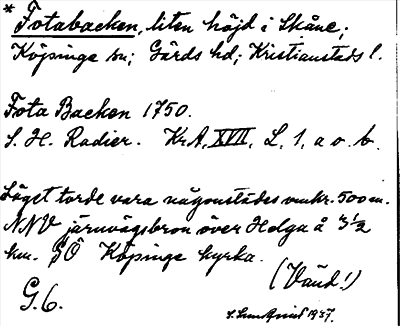 * Fotabacken, liten höjd i Skåne;
Köpinge sn; Gärds hd; Kristianstads l.
Fota Backen 1750.
S. H. Radier. Kr.A. XVII, L, 1, a o. b.
Läget torde vara någonstädes omkr. 500 m.
NNV järnvägsbron över Helga å 3 1/2
km. SÖ Köpinge kyrka.
(Vänd!)
G. 6.
1937.